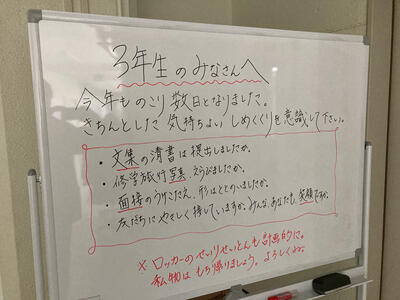 3年生のみなさんへ
今年ものこり数日となりました。
きちんとした気持ちよいしめくくりを意識して下さい。
・文集の清書は提出しましたか。
・修学旅行写真、えらびましたか。
・面接のうけこたえ、形はととのいましたか。
・友だちにやさしく接していますか。みんな、あなたも、笑顔ですか。
※ロッカーのせいりせいとんも計画的に。
私物はもち帰りましょう。よろしくね。